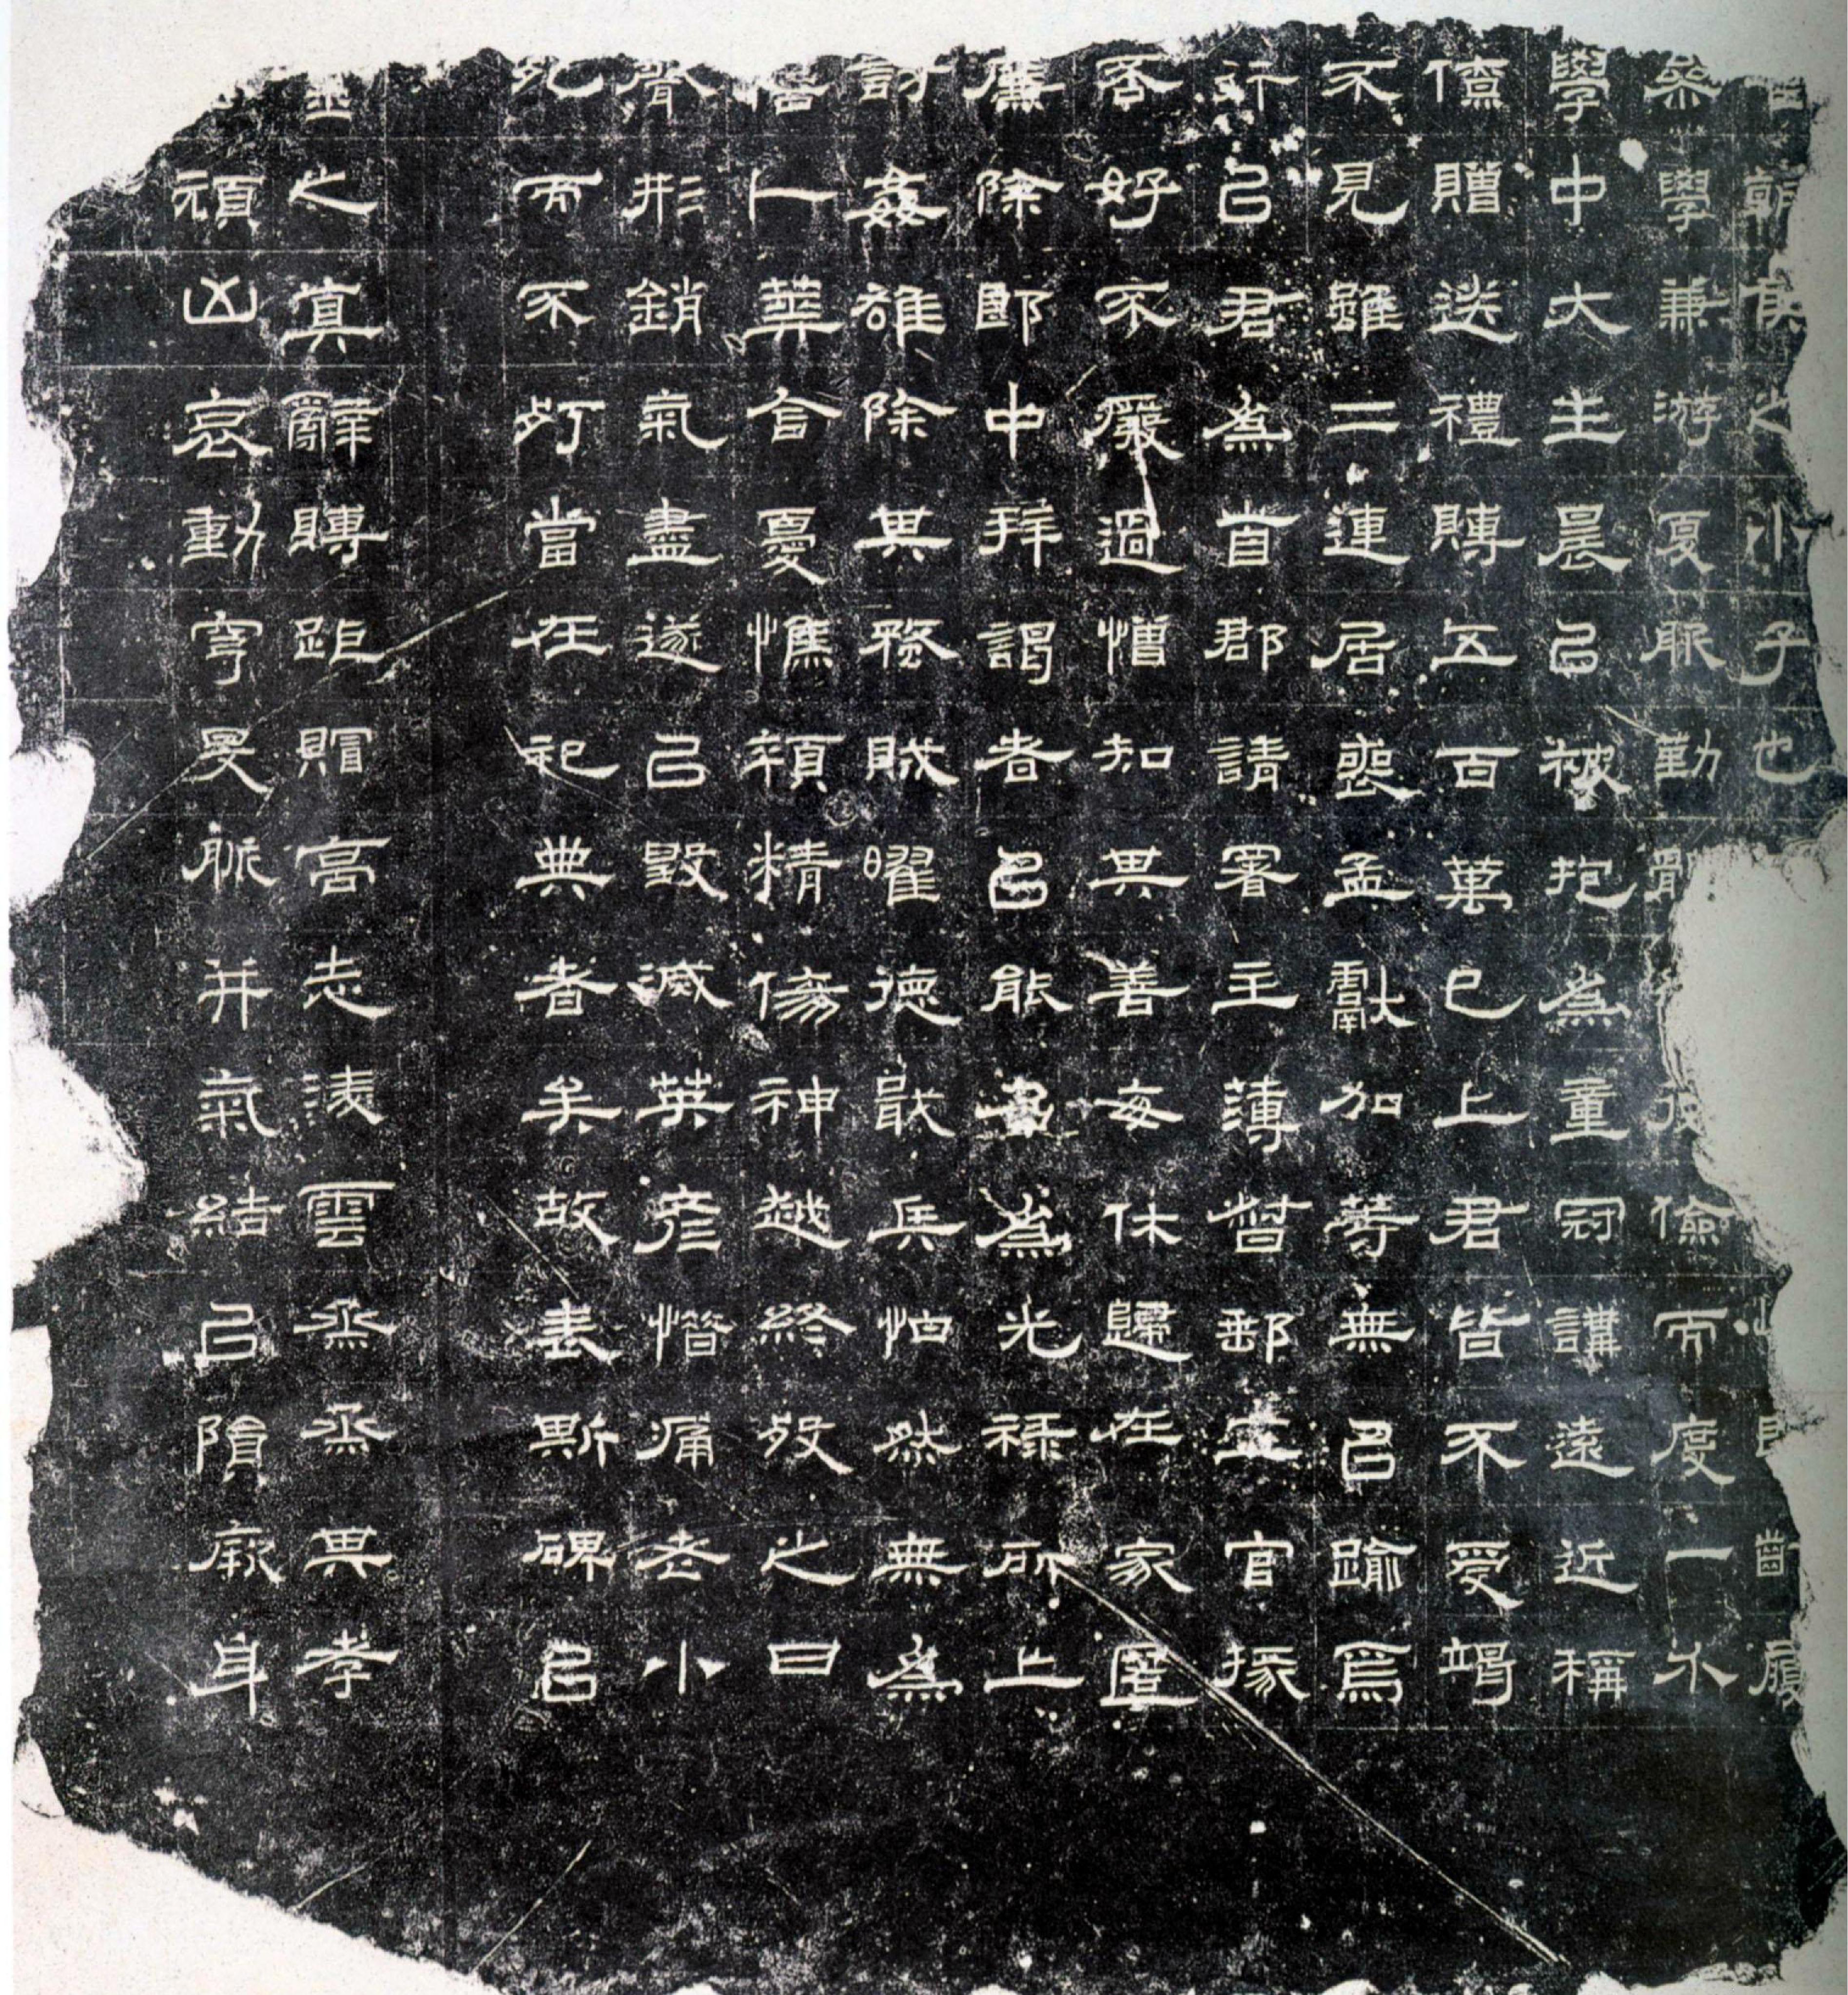 朝侯之小子也郎齔履
學兼游夏服勤體儉而度一小
學中大主晨以被抱為童冠講遠近稱
僚贈送禮賻五百萬已上君皆不受竭
不見雖二連居喪孟獻加等無以踰焉
行己君為首郡請署主薄督郵五官掾
否好不廢過憎知其善每休歸在家匿
廉除郎中拜謁者以能名為光祿所上
討姦雄除其蟊賊曜德戢兵怗然無為
卜葬含憂憔顇精傷神越終歿之日
膂形銷氣盡遂以毀滅英彥惜痛老小
死而不朽當在祀典者矣故表斯碑以
之真辭賻距賵高志淩雲烝烝其孝
禎凶哀動穹旻脈并氣結以隕厥身